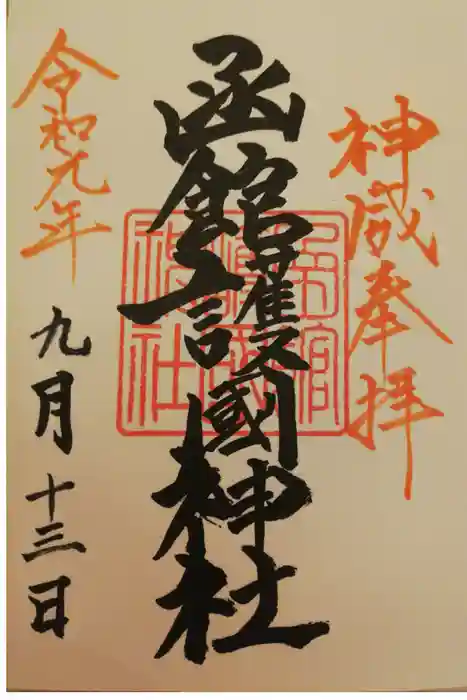 神威奉拝
函館護國神社
令和元年
九月十三日
函館
護國
神社